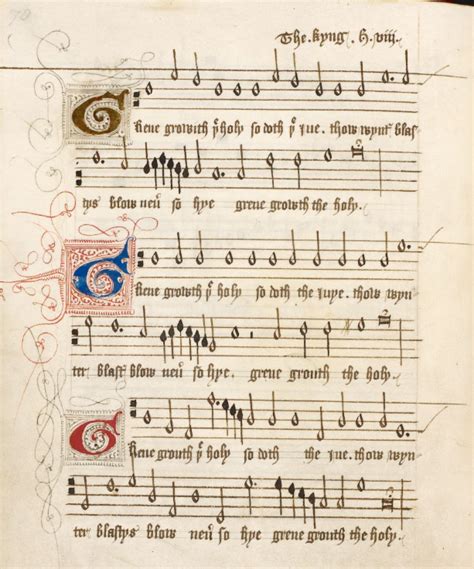 70
The kyng .h. viii.
Grene growith yͤ holy so doth yͤ iue. thow wynt blas
tys blow neuͬ so hye grene growth the holy.
Grene growith yͤ holy so doth the iuye. thow wyn
ter blast blow neuͬ so hye. grene growth the holy.
Grene growth yͤ holy so doth the iue. thow wyn
ter blastys blow neuͬ so hye grene growth the holy.